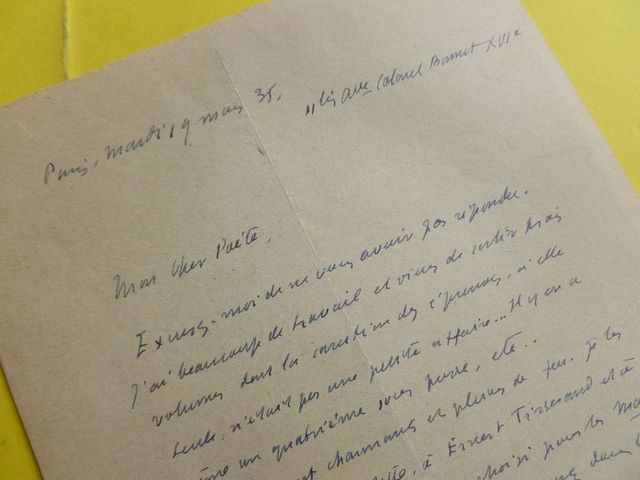 Paris, mardi, 9 mars 35,
11 bis Ave Colonel Bonnet XVIe
Mon cher Poète,
Excusez-moi de ne vous avoir pas répondu.
J'ai beaucoup de travail et viens de sortir trois
volumes dont la correction des épreuves, à elle
seule, n'était pas une petite affaire... Il y en a
même un quatrième sous presse, etc..
charmants et pleins de feu. Je les
à Ernest Tisserand et à
choisi pour les
dans